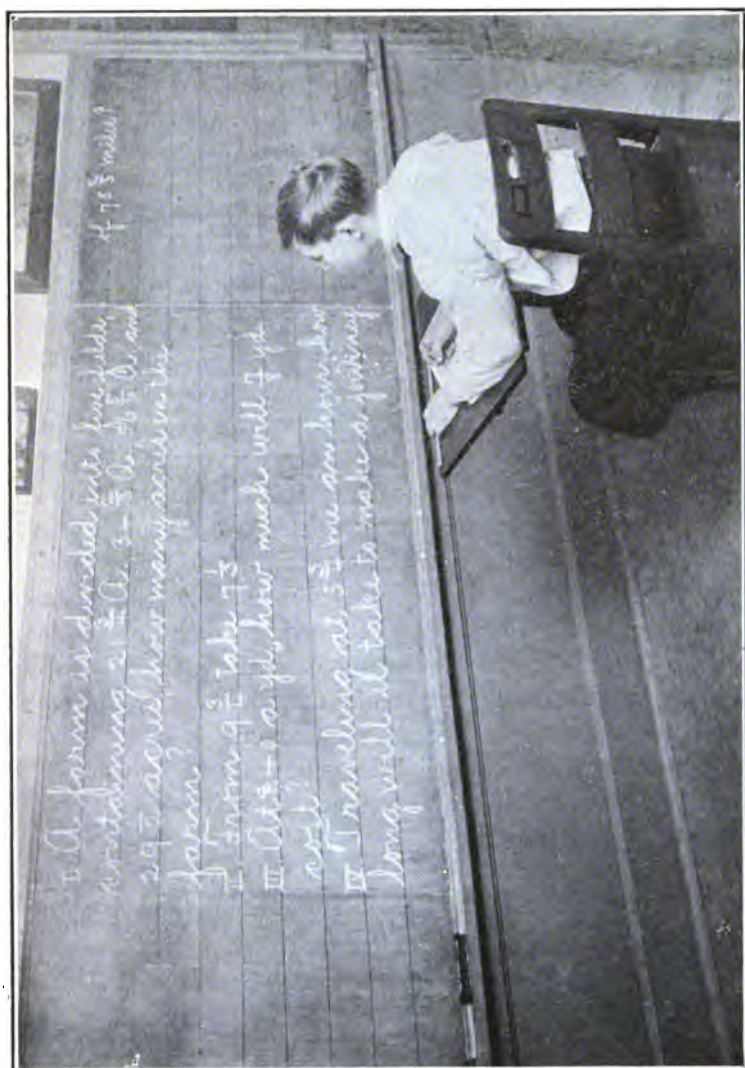 I A farm is divided into five fields
containing A. A. A. and
acres, how many acres in the
farm?
From take 7 1/3
III At a yd., how much will yd
cost?
IV Traveling at an hour, how
long will it take to make a journey
of miles?